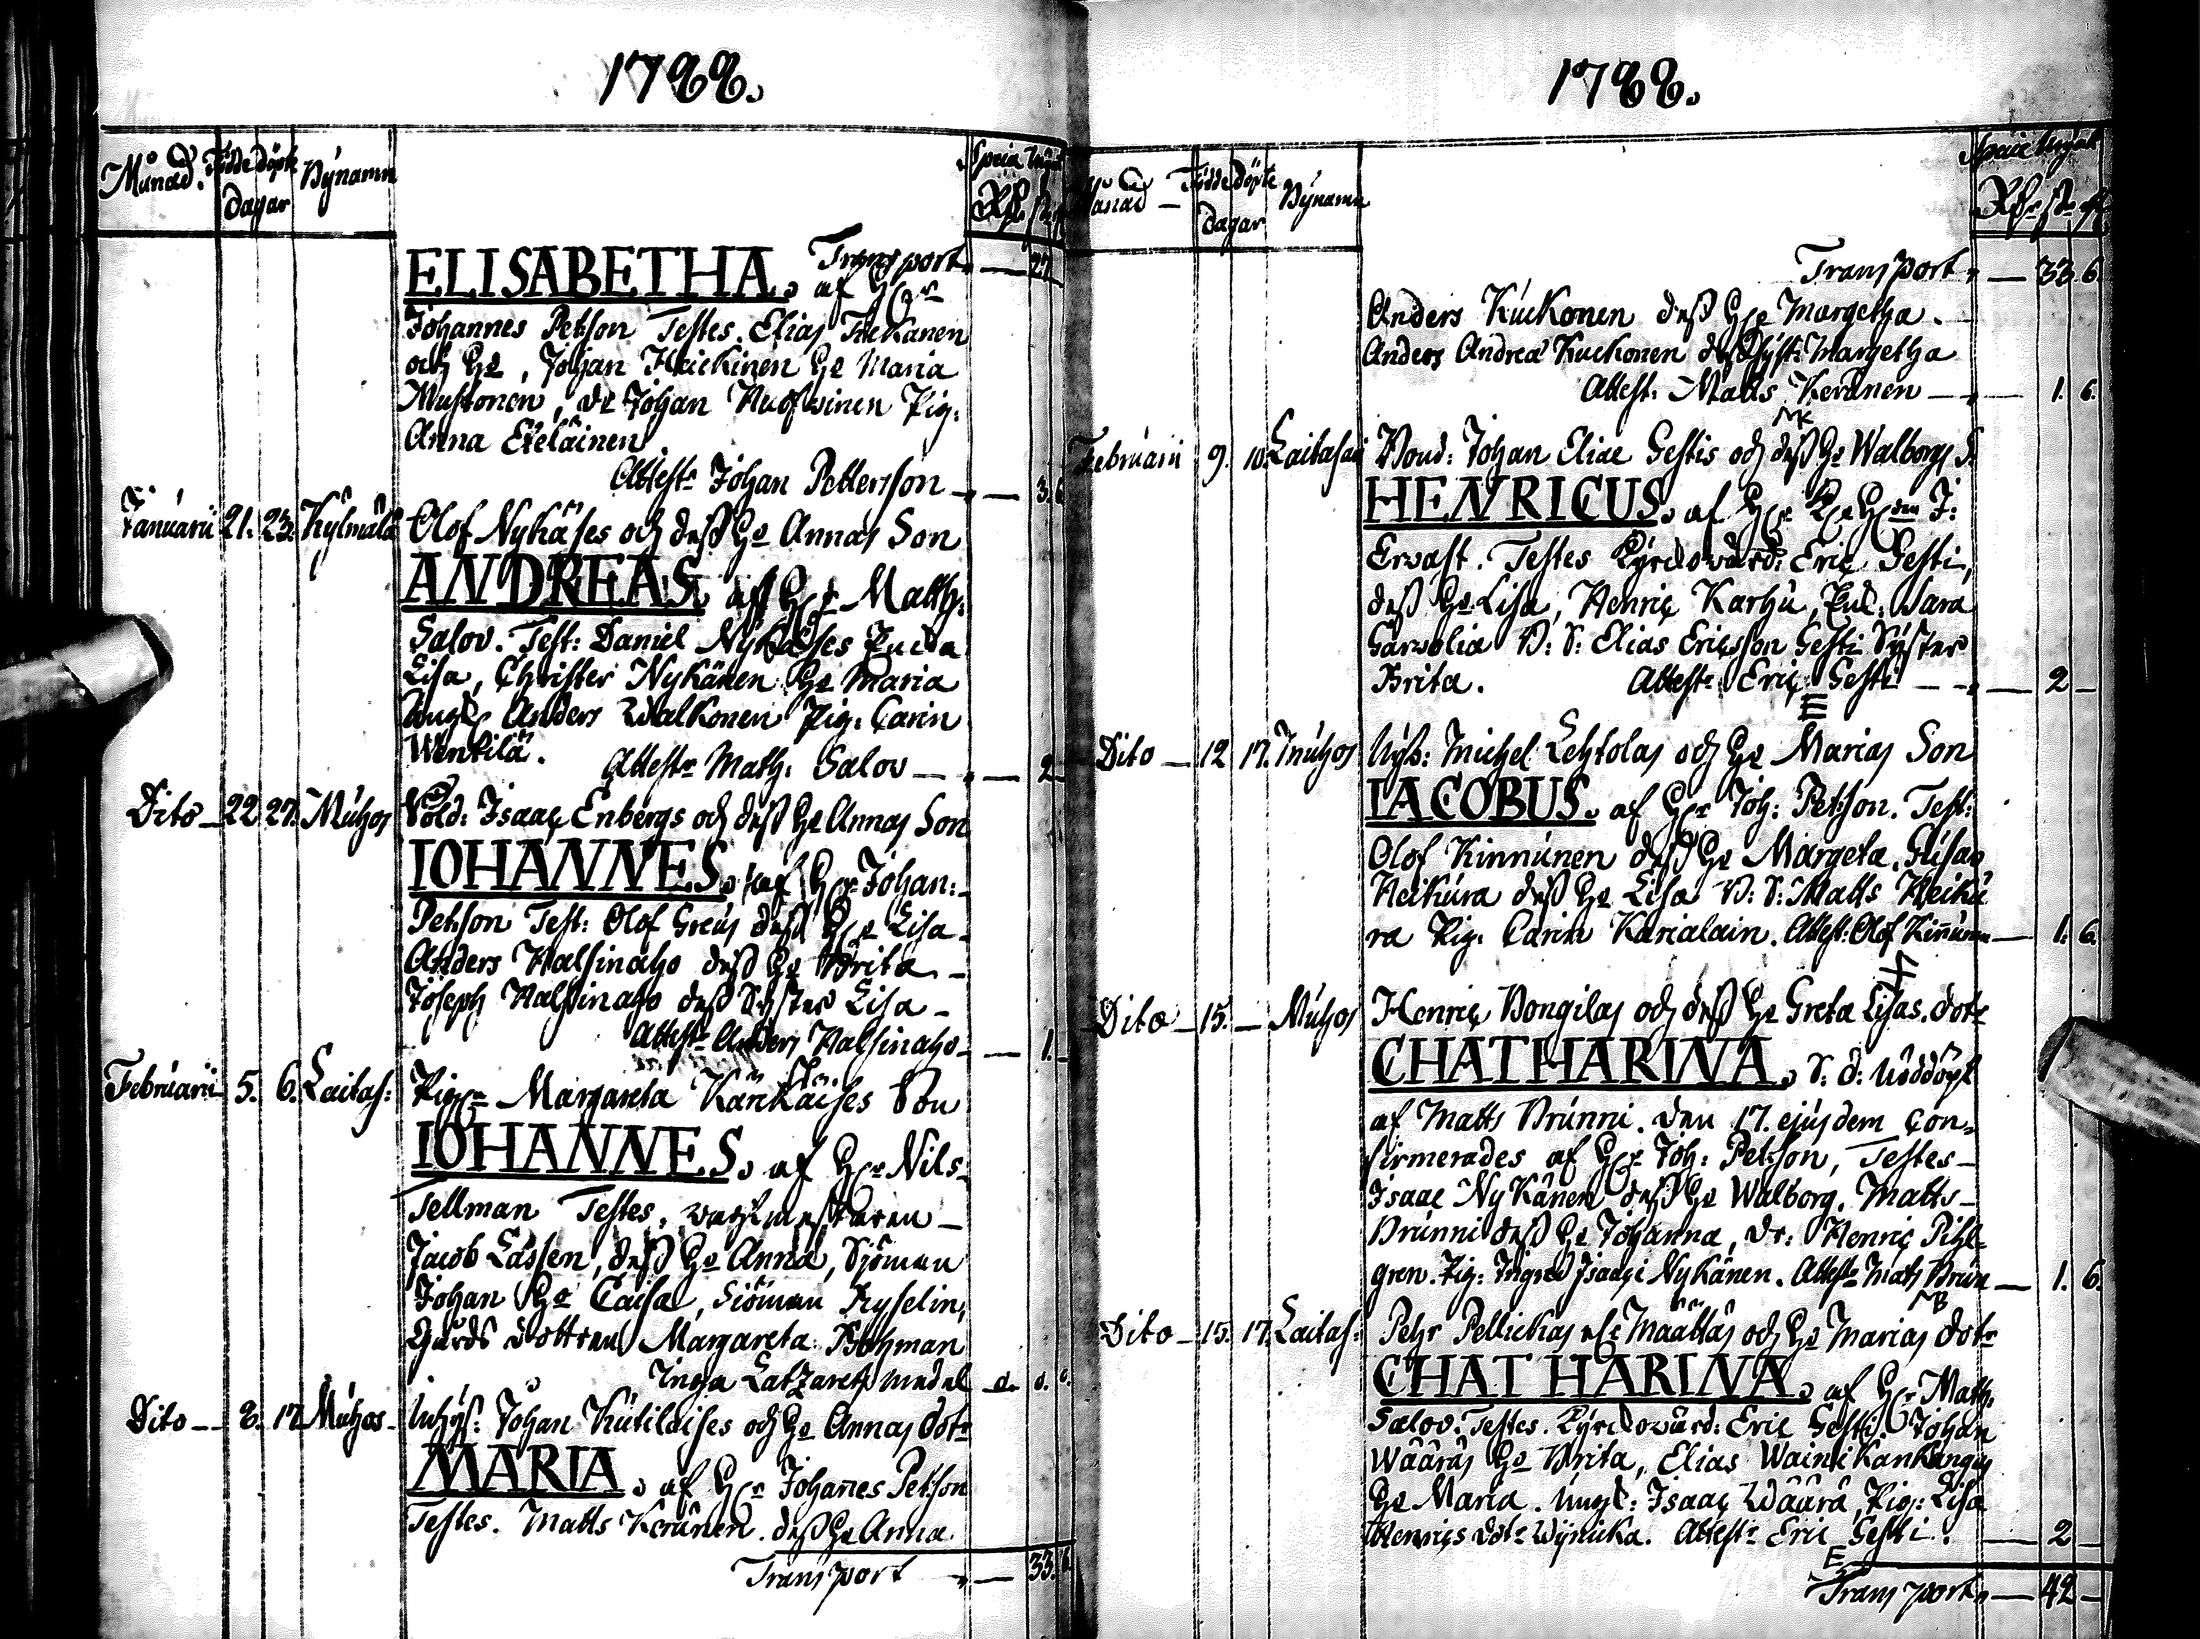 1788.
Månad. Födde döpte Bÿnamn
dagar
Transport 27
ELISABETHA. af H:r
Johannes Petson Testes. Elias
och H:o, Johan Heickinen H:o Maria
Mustonen, dr Johan Pig:
Anna Eteläinen
Attest:r Johan Pettersson 3. 6
Januarii 21. 23. Kylmälä Olof Nykäses och dess H:o Annas Son
ANDREAS. af H:r Matth:
Salov. Test: Daniel Nykäses
Lisa, Christer Nykänen H:o Maria
Anders Walkonen Pig: Carin
Wentilä. Attest:r Math: Salov 2
Dito 22 27. Muhos Sold: Isaac Enbergs och dess H:o Annas Son
IOHANNES. af H:r Johan:
Petson Test: Olof Greus dess H:o Lisa
Anders Halsinaho dess H:o Brita
Joseph Halsinaho dess Syster Lisa
Attest:r Anders Halsinaho 1.
Februarii 5. 6. Laitas: Pig:r Margareta Son
IOHANNES. af H:r Nils
Tellman Testes,
Jacob Lassen, dess H:o Anna, Sjöman
Johan H:o Caisa, Siöman
Gårds dottren Margareta
Inga
Dito 8. 17 Muhos Johan Kutilaises och H:o Annas dot:r
MARIA. af H:r Johannes Petson
Testes. Matts Keränen. dess H:o Anna
Transport 33. 6
1788.
Månad Födde döpte Bÿnamn
dagar
Transport 33 6
Anders Kuckonen dess H:o Margetha.
Anders Andreæ Kuckonen dess Syst: Margetha
Attest: Matts Keränen 1. 6.
MK
Februarii 9. 10. Laitasari Bond: Johan Eliae Gestis och dess H:o Walborgs S.
HENRICUS. af H:r J:
Erwast. Testes Kyrckowärd: Eric Gesti,
dess H:o Lisa, Henric Karhu, Sara
Elias Ericsson Gesti Syster
Brita. Attest:r Eric Gesti 2
E
Dito 12 17. Muhos Nyb: Michel Lehtolas och H:o Marias Son
IACOBUS. af H:r Joh: Petson. Test:
Olof Kinnunen dess H:o Margeta.
Heikura dess H:o Lisa D: S: Matts Heiku
ra Pig: Carin Karialain. Attest: Olof Kinnunen 1. 6.
Dito 15. Muhos Henric Bongilas och dess H:o Greta Lisas. dot:r
CHATHARINA. S. d: Nöddöpt
af Matts Brunni. den 17. ejusdem con-
firmerades af H:r Joh: Petson, Testes
Isaac Nykänen dess H:o Walborg. Matts
Brunni dess H:o Johanna, Dr: Henric Pihl-
gren. Pig: Ingred Isaaci Nykänen. Attest:r Mats Brun 1. 6.
MB
Dito 15. 17. Laitas: Pehr Pellickas Määttäs och H:o Marias dot:r
CHATHARINA. af H:r Math:
Salov. Testes. Kyrckowärd: Eric Gesti. Johan
Wääräs H:o Brita, Elias Wainikankangas
H:o Maria. Ungk: Isaac Wäärä, Pig: Lisa
Henrics dot:r Wÿnicka. Attest:r Eric Gesti. 2
E
Transport 42